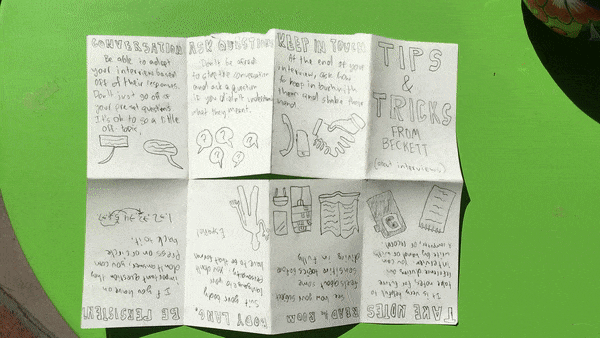 CONVERSATION
Be able to adapt
your interview based
off of their responses.
Don't just go off of
your preset questions
It's ok to go a little
off topic.
ASK QUESTIONS
Don't be afraid
to the conversation
and ask a question
if you didn't understand
what they meant.
KEEP IN TOUCH
At the end of your
interview, ask how
to keep in touch with
them and shake their
hand.
TIPS
&
TRICKS
FROM
BECKETT
interviews)
TAKE NOTES
It is very helpful
to take notes, for
reference during
interview. You can
write by hand or with
a computer, or record
READ ROOM
See how your
feels about some
sensitive topics before
diving in fully.
BODY LANG.
Suit your body
language to your
. You don't
have to be that formal
BE PERSISTENT
If you have an
important question they
don't answer, you can
press on or circle
back to it.